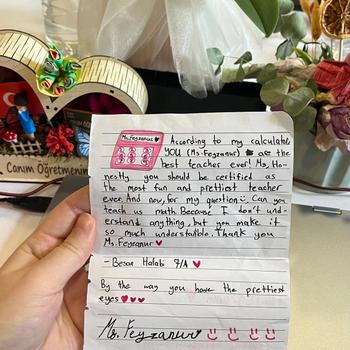 Canım Öğretmenim
Ms. Feyzanur ♥
According to my calculations
YOU (Ms. Feyzanur) are the
best teacher ever! Ms, Ho-
nestly you should be certified as
the most fun and prettiest teacher
ever. And now, for my question, Can you
teach us math Because I don't und-
erstand anything, but you make it
so much understadble. Thank you
Ms. Feyzanur ♥
- Besan Halabi 7/A ♥
By the way you have the prettiest
eyes ♥♥♥
Ms. Feyzanur ♥